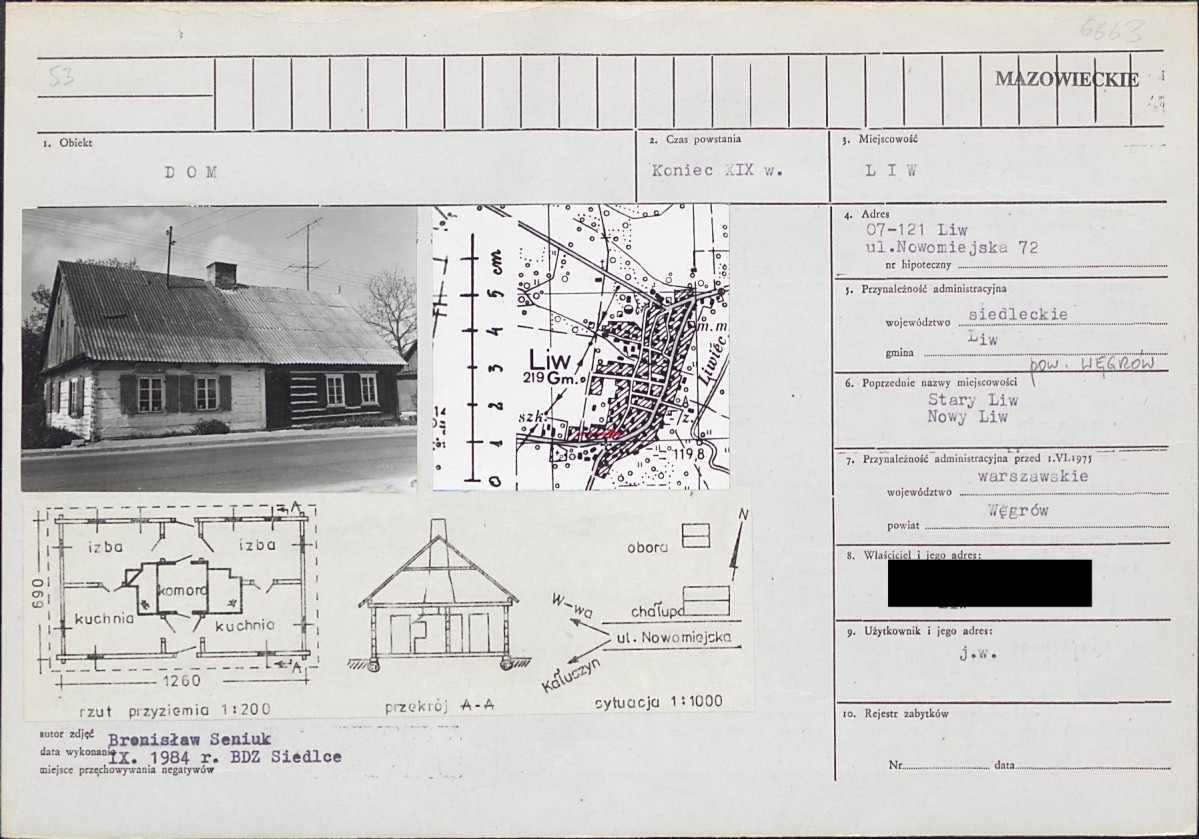 6663
53
MAZOWIECKIE
1. Obiekt
DOM
2. Czas powstania
Koniec XIX w.
3. Miejscowość
LIW
4. Adres
07-121 Liw
ul.Nowomiejska 72
nr hipoteczny
5. Przynależność administracyjna
województwo siedleckie
gmina Liw
pow. WĘGRÓW
6. Poprzednie nazwy miejscowości
Stary Liw
Nowy Liw
7. Przynależność administracyjna przed 1.VI.1975
województwo warszawskie
powiat Węgrów
8. Właściciel i jego adres:
9. Użytkownik i jego adres:
j.w.
10. Rejestr zabytków
Nr data
cm
5
4
3
2
1
0
Liw
219 Gm.
szk.
m.m.
Liwiec
119,8
A
izba
izba
komora
kuchnia
kuchnia
A
690
1260
rzut przyziemia 1:200
przekrój A-A
N
obora
chałupa
W-wa
ul. Nowomiejska
Kałuszyn
sytuacja 1:1000
autor zdjęć Bronisław Seniuk
data wykonania IX. 1984 r. BDZ Siedlce
miejsce przechowywania negatywów